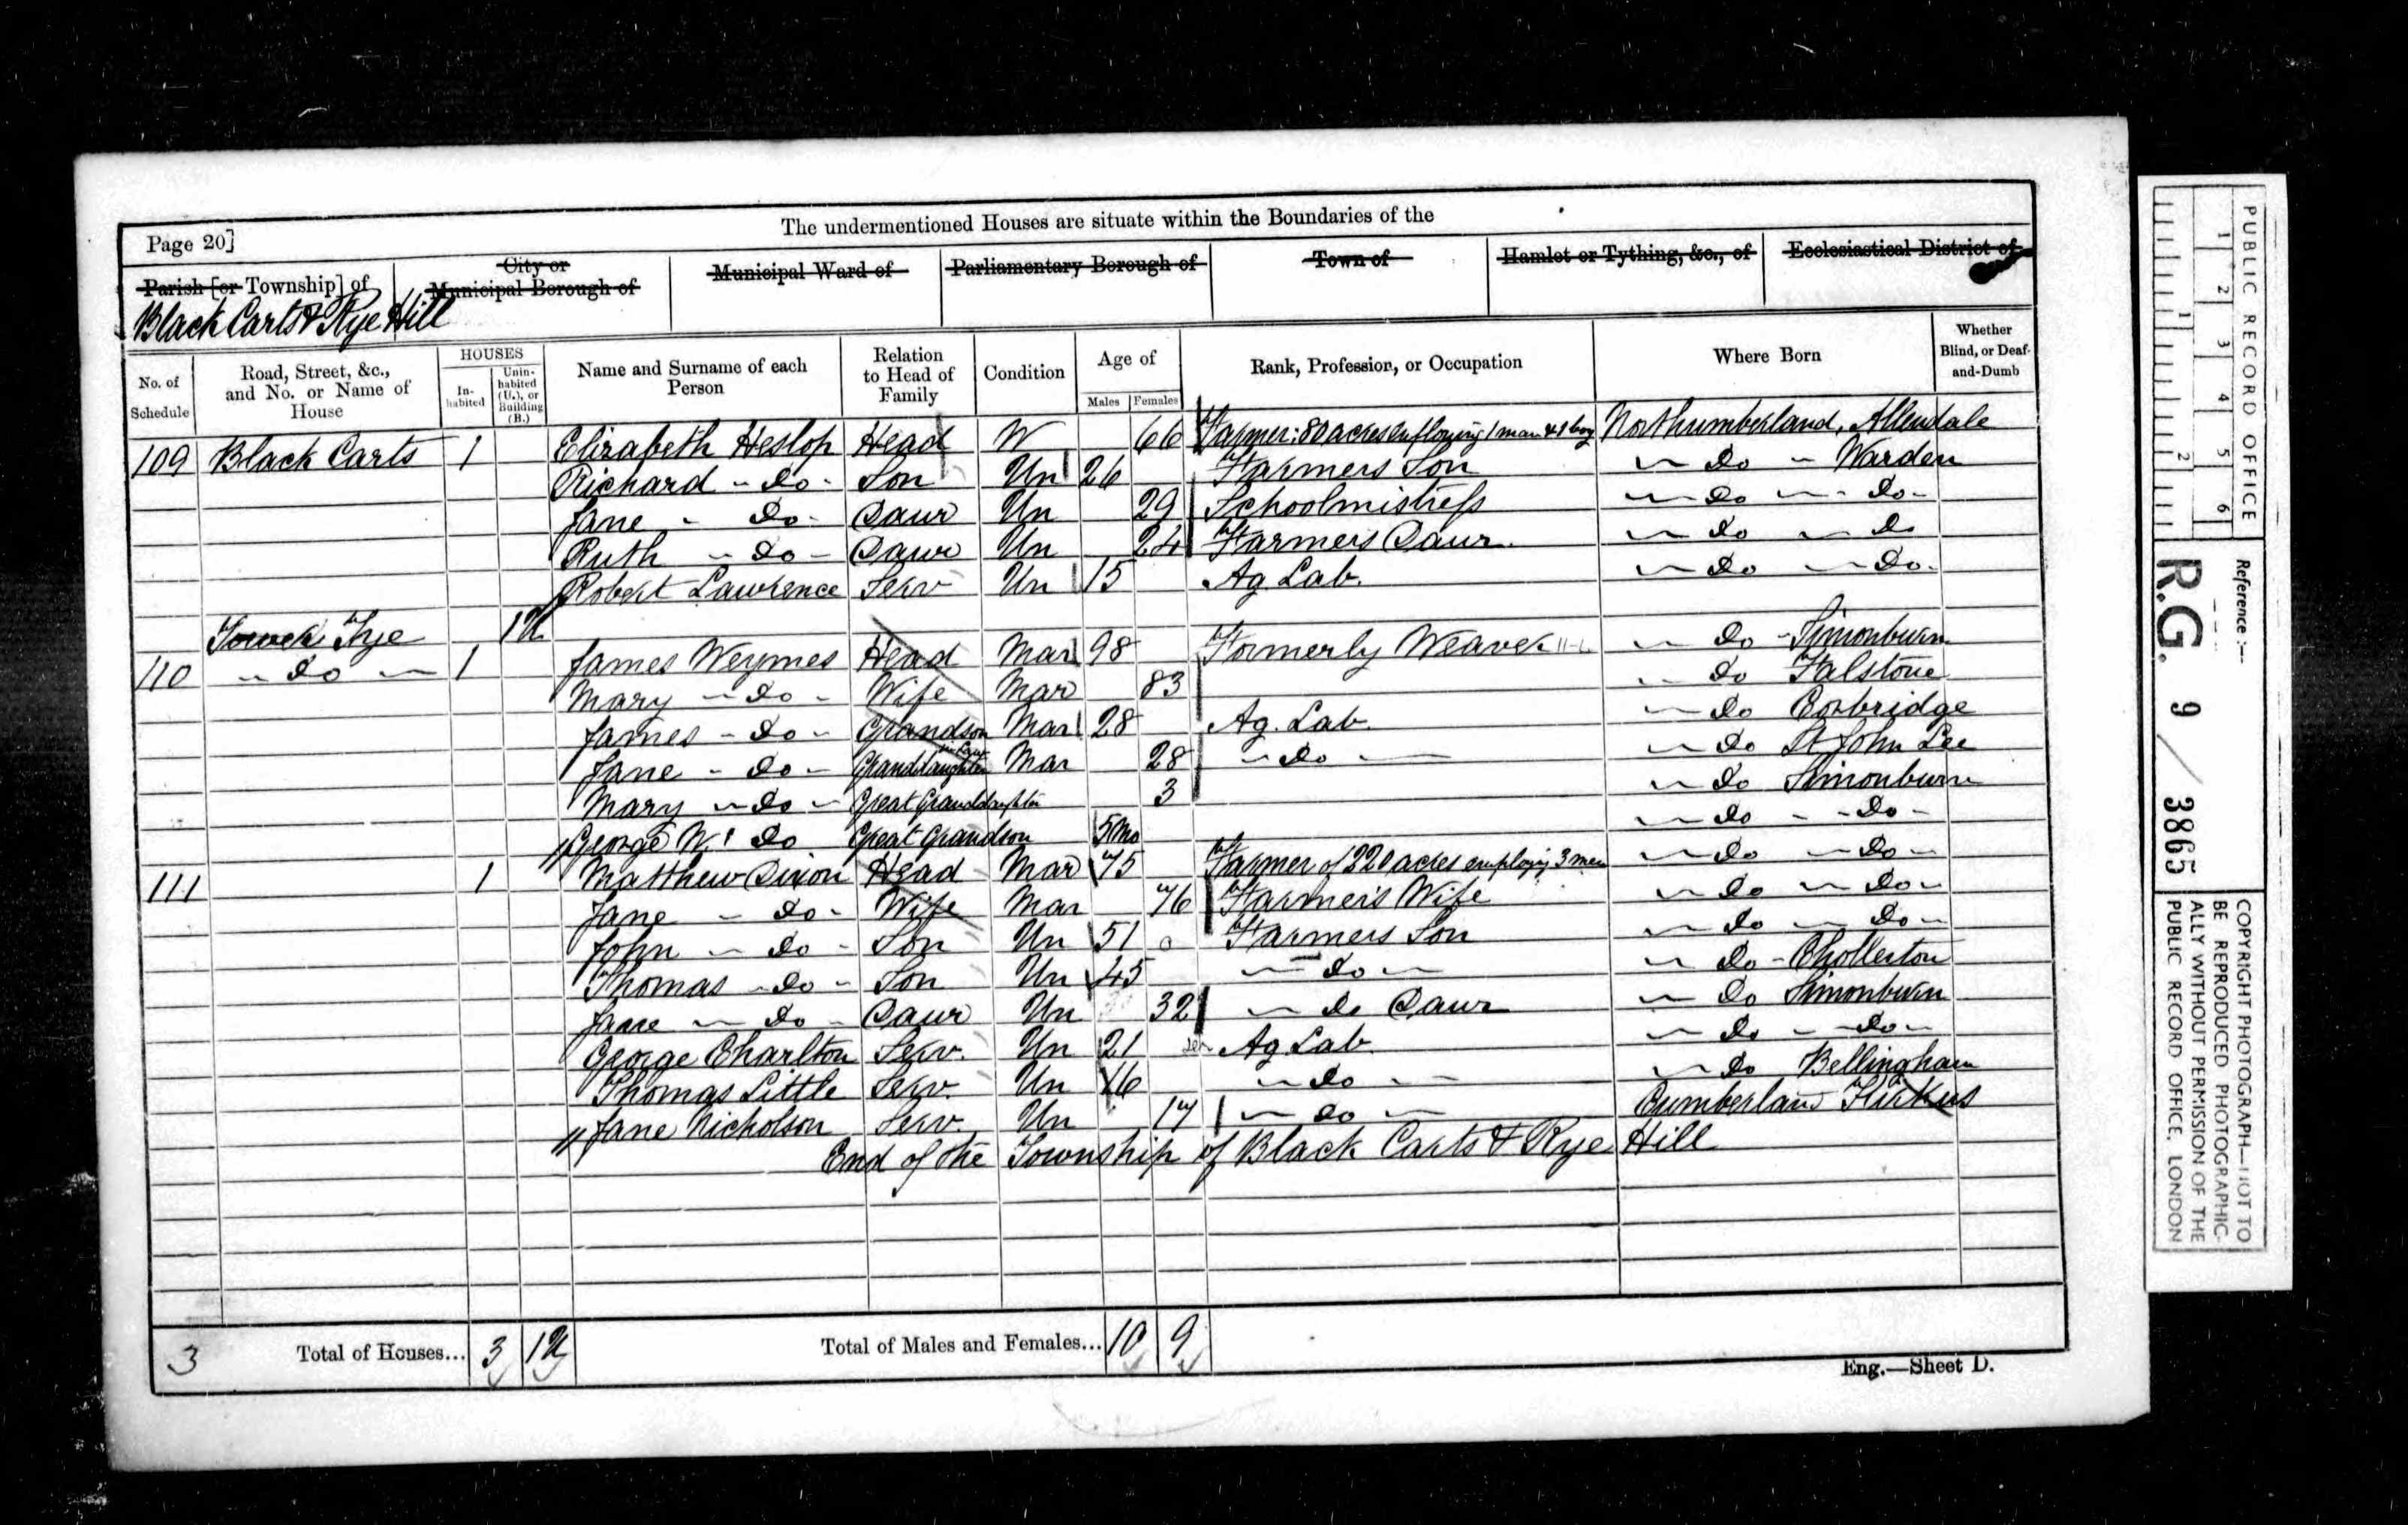 The undermentioned Houses are situate within the Boundaries of the
Page 20]
Parish [or Township] of
City or Municipal Borough of
Municipal Ward of
Parliamentary Borough of
Town of
Hamlet or Tything, &c., of
Ecclesiastical District of
Black Carts & Rye Hill
No. of Schedule
Road, Street, &c., and No. or Name of House
HOUSES
In-habited
Unin-habited (U.), or Building (B.)
Name and Surname of each Person
Relation to Head of Family
Condition
Age of
Males
Females
Rank, Profession, or Occupation
Where Born
Whether Blind, or Deaf-and-Dumb
109 Black Carts 1 Elizabeth Heslop Head W 66 Farmer: 80 acres employing 1 man & 1 boy Northumberland, Allendale
Richard - do - Son Un 26 Farmers Son - do - Warden
Jane - do - Daur Un 29 Schoolmistress - do - - do -
Ruth - do - Daur Un 24 Farmers Daur - do - do
Robert Lawrence Serv Un 15 Ag. Lab. - do - do -
Tower Tye 1 U
110 - do - 1 James Weymes Head Mar 98 Formerly Weaver - do - Simonburn
Mary - do - Wife Mar 83 - do Falstone
James - do - Grandson Mar 28 Ag. Lab. - do Corbridge
Jane - do - Granddaughter in Law Mar 28 - do - - do St John Lee
Mary - do - Great Granddaughter 3 - do Simonburn
George W. do Great Grandson 5 Mo - do - - do -
111 1 Matthew Dixon Head Mar 75 Farmer of 220 acres employing 3 men - do - do -
Jane - do - Wife Mar 76 Farmer's Wife - do - do -
John - do - Son Un 51 Farmers Son - do - do -
Thomas - do - Son Un 45 - do - - do - Chollerton
Jane - do - Daur Un 32 - do Daur - do Simonburn
George Charlton Serv. Un 21 Ag. Lab. - do - do -
Thomas Little Serv. Un 16 - do - - do Bellingham
Jane Nicholson Serv. Un 17 - do - Cumberland
End of the Township of Black Carts & Rye Hill
3 Total of Houses... 3 1 U Total of Males and Females... 10 9
Eng.—Sheet D.
PUBLIC RECORD OFFICE
1 2 3 4 5 6
1 2
Reference :—
R.G. 9 / 3865
COPYRIGHT PHOTOGRAPH—NOT TO
BE REPRODUCED PHOTOGRAPHIC-
ALLY WITHOUT PERMISSION OF THE
PUBLIC RECORD OFFICE, LONDON